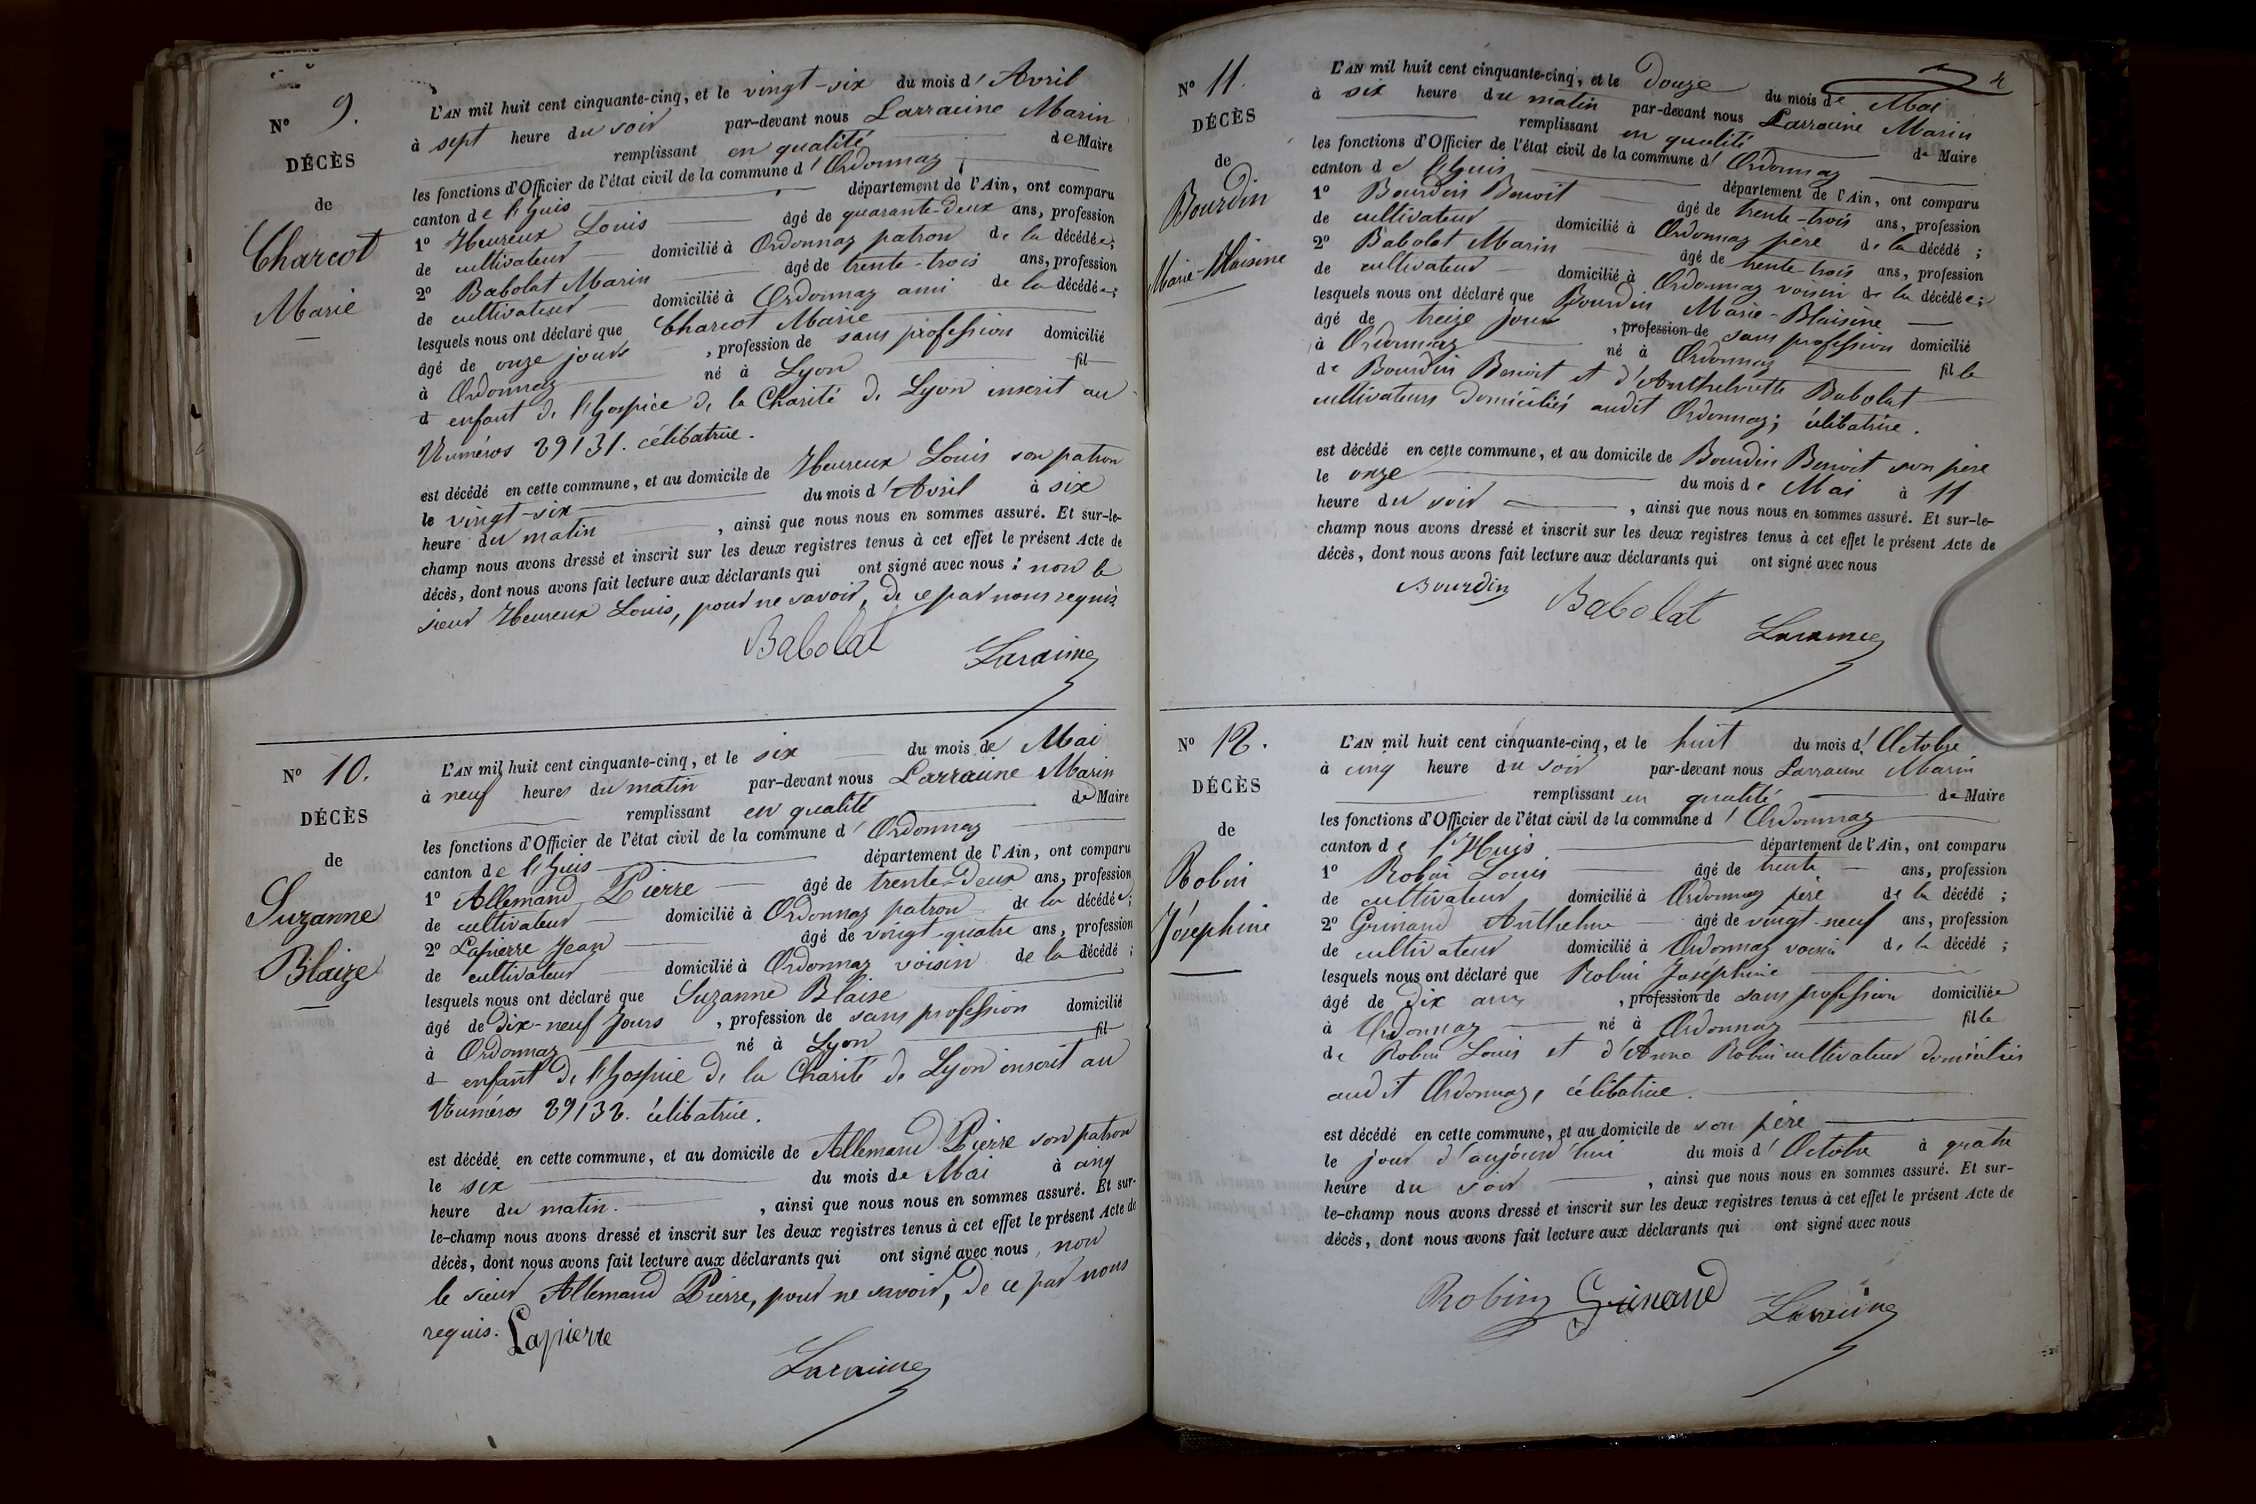 N° 9.
DÉCÈS
de
Charcot
Marie
L'AN mil huit cent cinquante-cinq, et le vingt-six du mois d'Avril
à sept heure du soir par-devant nous Larraine Marin
remplissant en qualité de Maire
les fonctions d'Officier de l'état civil de la commune d'Ordonnaz
canton de l'huis département de l'Ain, ont comparu
1° Heureux Louis âgé de quarante-deux ans, profession
de cultivateur domicilié à Ordonnaz patron de la décédée;
2° Babolat Marin âgé de trente-trois ans, profession
de cultivateur domicilié à Ordonnaz ami de la décédée;
lesquels nous ont déclaré que Charcot Marie
âgé de onze jours, profession de sans profession domicilié
à Ordonnaz né à Lyon fil
d enfant de l'hospice de la Charité de Lyon inscrit au
Numéros 29131. célibatrice.
est décédé en cette commune, et au domicile de Heureux Louis son patron
le vingt-six du mois d'Avril à six
heure du matin, ainsi que nous nous en sommes assuré. Et sur-le-
champ nous avons dressé et inscrit sur les deux registres tenus à cet effet le présent Acte de
décès, dont nous avons fait lecture aux déclarants qui ont signé avec nous : non le
sieur Heureux Louis, pour ne savoir, de ce par nous requis.
Babolat Laraine
N° 10.
DÉCÈS
de
Suzanne
Blaize
L'AN mil huit cent cinquante-cinq, et le six du mois de Mai
à neuf heures du matin par-devant nous Larraine Marin
remplissant en qualité de Maire
les fonctions d'Officier de l'état civil de la commune d'Ordonnaz
canton de l'huis département de l'Ain, ont comparu
1° Allemand Pierre âgé de trente-deux ans, profession
de cultivateur domicilié à Ordonnaz patron de la décédée;
2° Lapierre Jean âgé de vingt-quatre ans, profession
de cultivateur domicilié à Ordonnaz voisin de la décédé;
lesquels nous ont déclaré que Suzanne Blaise
âgé de dix-neuf jours, profession de sans profession domicilié
à Ordonnaz né à Lyon fil
d enfant de l'hospice de la Charité de Lyon inscrit au
Numéros 29132. célibatrice.
est décédé en cette commune, et au domicile de Allemand Pierre son patron
le six du mois de Mai à cinq
heure du matin., ainsi que nous nous en sommes assuré. Et sur-
le-champ nous avons dressé et inscrit sur les deux registres tenus à cet effet le présent Acte de
décès, dont nous avons fait lecture aux déclarants qui ont signé avec nous, non
le sieur Allemand Pierre, pour ne savoir, de ce par nous
requis. Lapierre
Laraine
4
N° 11.
DÉCÈS
de
Bourdin
Marie-Blaisine
L'AN mil huit cent cinquante-cinq, et le douze du mois de Mai
à six heure du matin par-devant nous Larraine Marin
remplissant en qualité de Maire
les fonctions d'Officier de l'état civil de la commune d'Ordonnaz
canton de l'huis département de l'Ain, ont comparu
1° Bourdin Benoit âgé de trente-trois ans, profession
de cultivateur domicilié à Ordonnaz père de la décédé;
2° Babolat Marin âgé de trente-trois ans, profession
de cultivateur domicilié à Ordonnaz voisin de la décédée;
lesquels nous ont déclaré que Bourdin Marie-Blaisine
âgé de treize jour, profession de sans profession domicilié
à Ordonnaz né à Ordonnaz fille
de Bourdin Benoit et d'Anthelmette Babolat
cultivateurs domiciliés audit Ordonnaz; célibatrice.
est décédé en cette commune, et au domicile de Bourdin Benoit son père
le onze du mois de Mai à 11
heure du soir, ainsi que nous nous en sommes assuré. Et sur-le-
champ nous avons dressé et inscrit sur les deux registres tenus à cet effet le présent Acte de
décès, dont nous avons fait lecture aux déclarants qui ont signé avec nous
Bourdin Babolat Laraine
N° 12.
DÉCÈS
de
Robin
Joséphine
L'AN mil huit cent cinquante-cinq, et le huit du mois d'Octobre
à cinq heure du soir par-devant nous Larraine Marin
remplissant en qualité de Maire
les fonctions d'Officier de l'état civil de la commune d'Ordonnaz
canton de l'Huis département de l'Ain, ont comparu
1° Robin Louis âgé de trente ans, profession
de cultivateur domicilié à Ordonnaz père de la décédé;
2° Grinand Anthelme âgé de vingt-neuf ans, profession
de cultivateur domicilié à Ordonnaz voisin de la décédé;
lesquels nous ont déclaré que Robin Joséphine
âgé de dix ans, profession de sans profession domiciliée
à Ordonnaz né à Ordonnaz fille
de Robin Louis et d'Anne Robin cultivateur domiciliés
audit Ordonnaz, célibatrice.
est décédé en cette commune, et au domicile de son père
le jour d'aujourd'hui du mois d'Octobre à quatre
heure du soir, ainsi que nous nous en sommes assuré. Et sur-
le-champ nous avons dressé et inscrit sur les deux registres tenus à cet effet le présent Acte de
décès, dont nous avons fait lecture aux déclarants qui ont signé avec nous
Robin Grinand Laraine